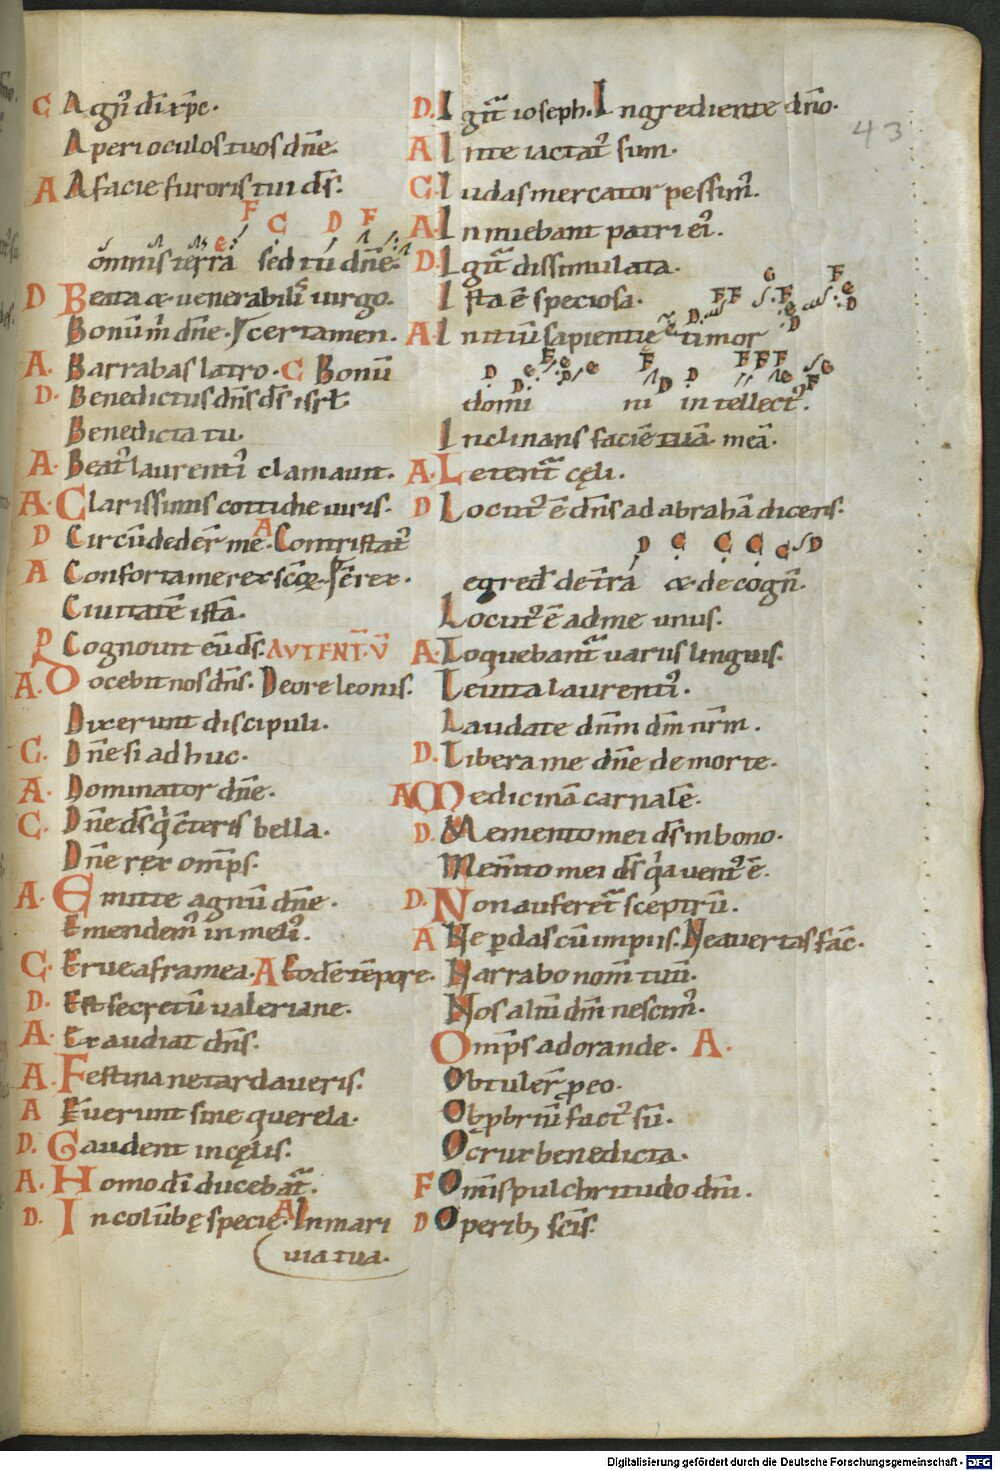 C Agn᷑ dī xp̄e.
Aperi oculos tuos dn̄e.
A A facie furoris tui ds̄.
F C D F
omnis terra sed tu dn̄e.
D Beata & uenerabilis uirgo.
Bonū m̄ dn̄e. certamen.
A. Barrabas latro. C Bonū
D. Benedictus dn̄s ds̄ isrl̄
Benedicta tu.
A. Beat᷑ laurenti᷑ clamauit.
A. Clarissimis cottidie uiris.
D Circūdeder̄ me. A Contristat᷑
A Conforta me rex scō&. Sēr ex.
Ciuitatē istā.
P Cognouit eū ds̄. AVTENT̄. V̄
A. Docebit nos dn̄s. De ore leonis.
Dixerunt discipuli.
C. Dn̄e si adhuc.
A. Dominator dn̄e.
C. Dn̄e ds̄ q̄ c̄teris bella.
Dn̄e rex omp̄s.
A. Emitte agnū dn̄e.
Emendem᷑ in meli᷑.
C. Erue a framea. A Eodē tēpore.
D. Est secretū ualeriane.
A. Exaudiat dn̄s.
A. Festina ne tardaueris.
A Fuerunt sine querela.
D. Gaudent in cęlis.
A. Homo dī ducebat᷑.
D. In colūbę specie. A In mari
uia tua.
D. Igit᷑ ioseph. Ingrediente dn̄o.
A Inte iactat᷑ sum.
C. Iudas mercator pessim᷑.
A. Innuebant patri ei᷑.
D. Igit᷑ dissimulata.
Ista ē speciosa.
A. Initiū sapientie timor
domi ni intellect᷑.
Inclinans faciē tuā meā.
A. Letent᷑ cęli.
D Locut᷑ ē dn̄s ad abrahā dicens.
D C C C C D
egred̄ de trā & de cogn̄.
Locut᷑ ē ad me unus.
A. Loquebant᷑ uariis linguis.
Leuita laurenti᷑.
Laudate dn̄m dm̄ nr̄m.
D. Libera me dn̄e de morte.
A Medicinā carnalē.
D. Memento mei ds̄ in bono.
Mem̄to mei ds̄ qa uent᷑ ē.
D. Non auferet᷑ sceptrū.
A Ne perdas cū impiis. Ne auertas fac̄.
Narrabo nom̄ tuū.
Nos aliū dm̄ nescim᷑.
Omp̄s adorande. A.
Obtuler̄ p eo.
Obpbriū fact᷑ sū.
O crux benedicta.
F Omīs pulchritudo dn̄i.
D O perib; scīs.
Digitalisierung gefördert durch die Deutsche Forschungsgemeinschaft - DFG